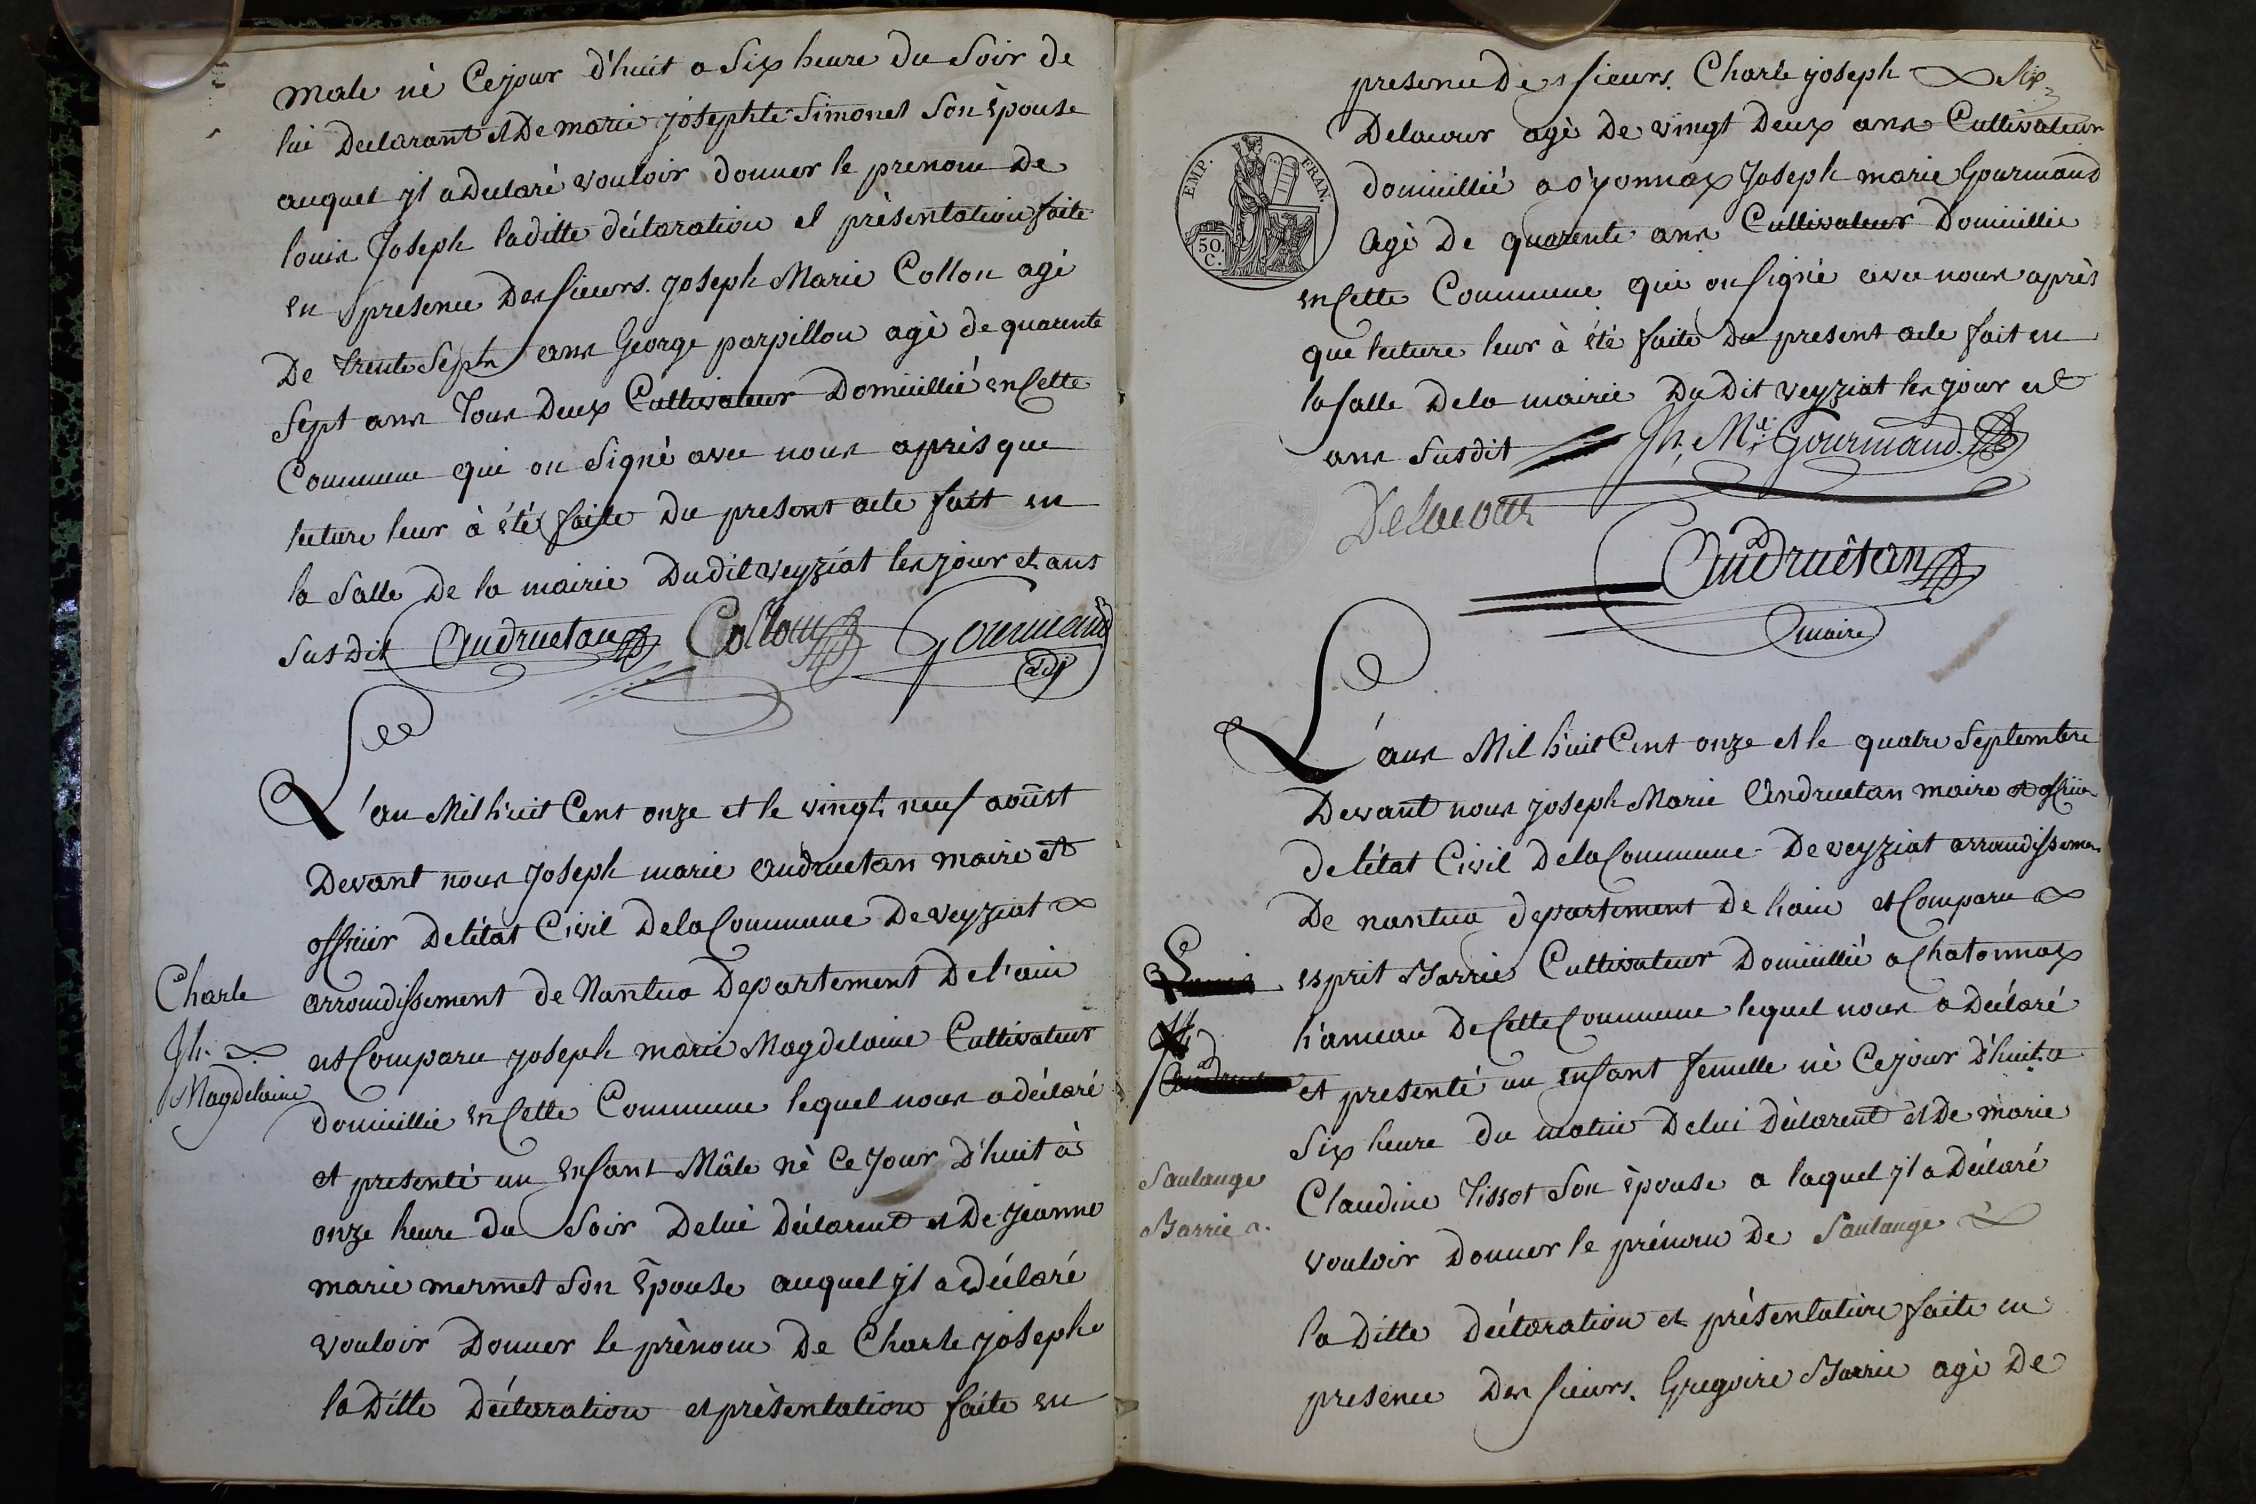 male né Cejour d'huit a Six heure du Soir de
lui Declarant et De marie josephte Simonet Son épouse
auquel yl a Declaré vouloir donner le prenom De
louis Joseph laditte déclaration et présentation faite
en presence Des sieurs. joseph Marie Collon agé
De trente Sept ans George parpillon agé de quarente
Sept ans Tous Deux Cultivateur Domicillié en Cette
Commune qui on Signé avec nous aprés que
lecture leur à été faite Du present acte fait en
la Salle De la mairie Dudit veyziat les jour et ans
Susdit Andruetan Collon Gourmand
adj
L'an Mil huit Cent onze et le vingt neuf aoust
Devant nous joseph marie Andruetan maire et
officier De l'état Civil De la Commune De veyziat
Charle
arrondissement de Nantua Departement De l'ain
Jh.
est Comparu joseph marie Magdelaine Cultivateur
Magdelaine
Domicillié en Cette Commune lequel nous a déclaré
et presenté un enfant Mâle né Ce jour D'huit à
onze heure du Soir De lui Déclarent et De jeanne
marie mermet Son épouse auquel yl a Déclaré
vouloir Donner le prénom De Charle joseph
la Ditte Déclaration et présentation faite en
presence Des sieurs. Charle joseph
Delacour agé De vingt Deux ans Cultivateur
EMP. FRAN.
50.
C.
domicillié a oyonnax Joseph marie Gourmand
agé De quarente ans Cultivateur Domicillié
en Cette Commune qui on signé avec nous après
que lecture leur à été faite Du present acte fait en
la salle De la mairie Du Dit veyziat les jour et
ans Susdit Jh. Mie Gourmand
Delacour
Andruétan
maire
L'ans Mil huit Cent onze et le quatre Septembre
Devant nous joseph Marie Andruetan maire et officier
de l'état Civil De la Commune De veyziat arrondissemen
De nantua departement De l'ain est Comparu
Louis
esprit Barrie Cultivateur Domicillié a Chatonnax
Jh.
hameau De Cette Commune lequel nous a Déclaré
Andruetan
et presenté un enfant femelle né Cejour D'huit a
Six heure du matin De lui Déclarent et De marie
Saulange
Claudine Tissot Son épouse a laquel yl a Déclaré
Barrie
vouloir Donner le prénom De Saulange
la Ditte Déclaration et présentation faite en
presence Des sieurs. Gregoire Barrie agé De